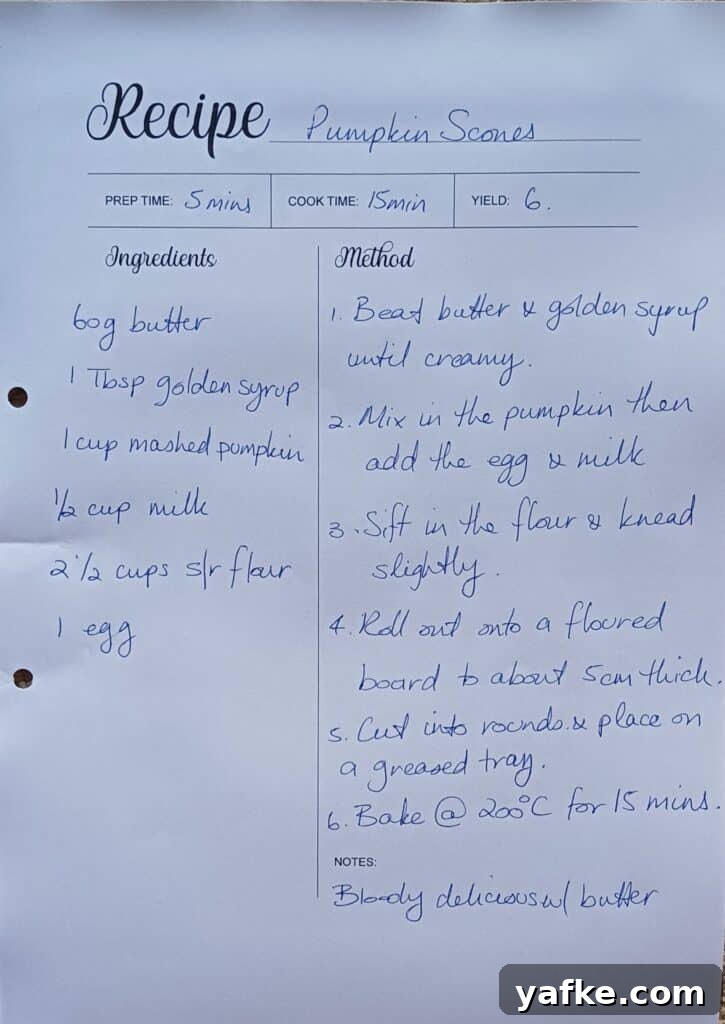 Recipe Pumpkin Scones
PREP TIME: 5 mins COOK TIME: 15min YIELD: 6.
Ingredients
60g butter
1 Tbsp golden syrup
1 cup mashed pumpkin
1/2 cup milk
2 1/2 cups s/r flour
1 egg
Method
1. Beat butter & golden syrup
until creamy.
2. Mix in the pumpkin then
add the egg & milk
3. Sift in the flour & knead
slightly.
4. Roll out onto a floured
board to about 5cm thick.
5. Cut into rounds & place on
a greased tray.
6. Bake @ 200°C for 15 mins.
NOTES:
Bloody delicious w/ butter
yafke.com